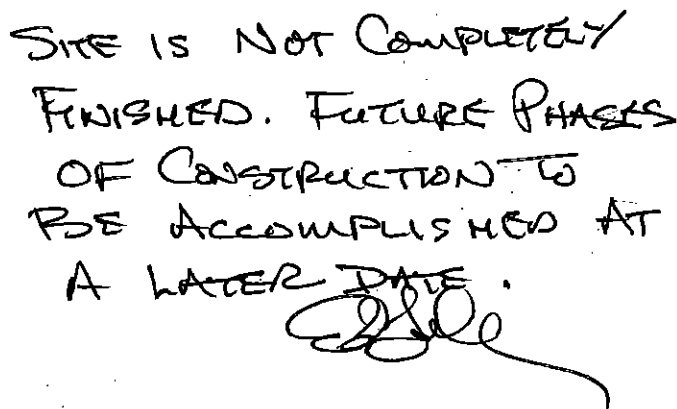 SITE IS NOT COMPLETELY
FINISHED. FUTURE PHASES
OF CONSTRUCTION TO
BE ACCOMPLISHED AT
A LATER DATE.